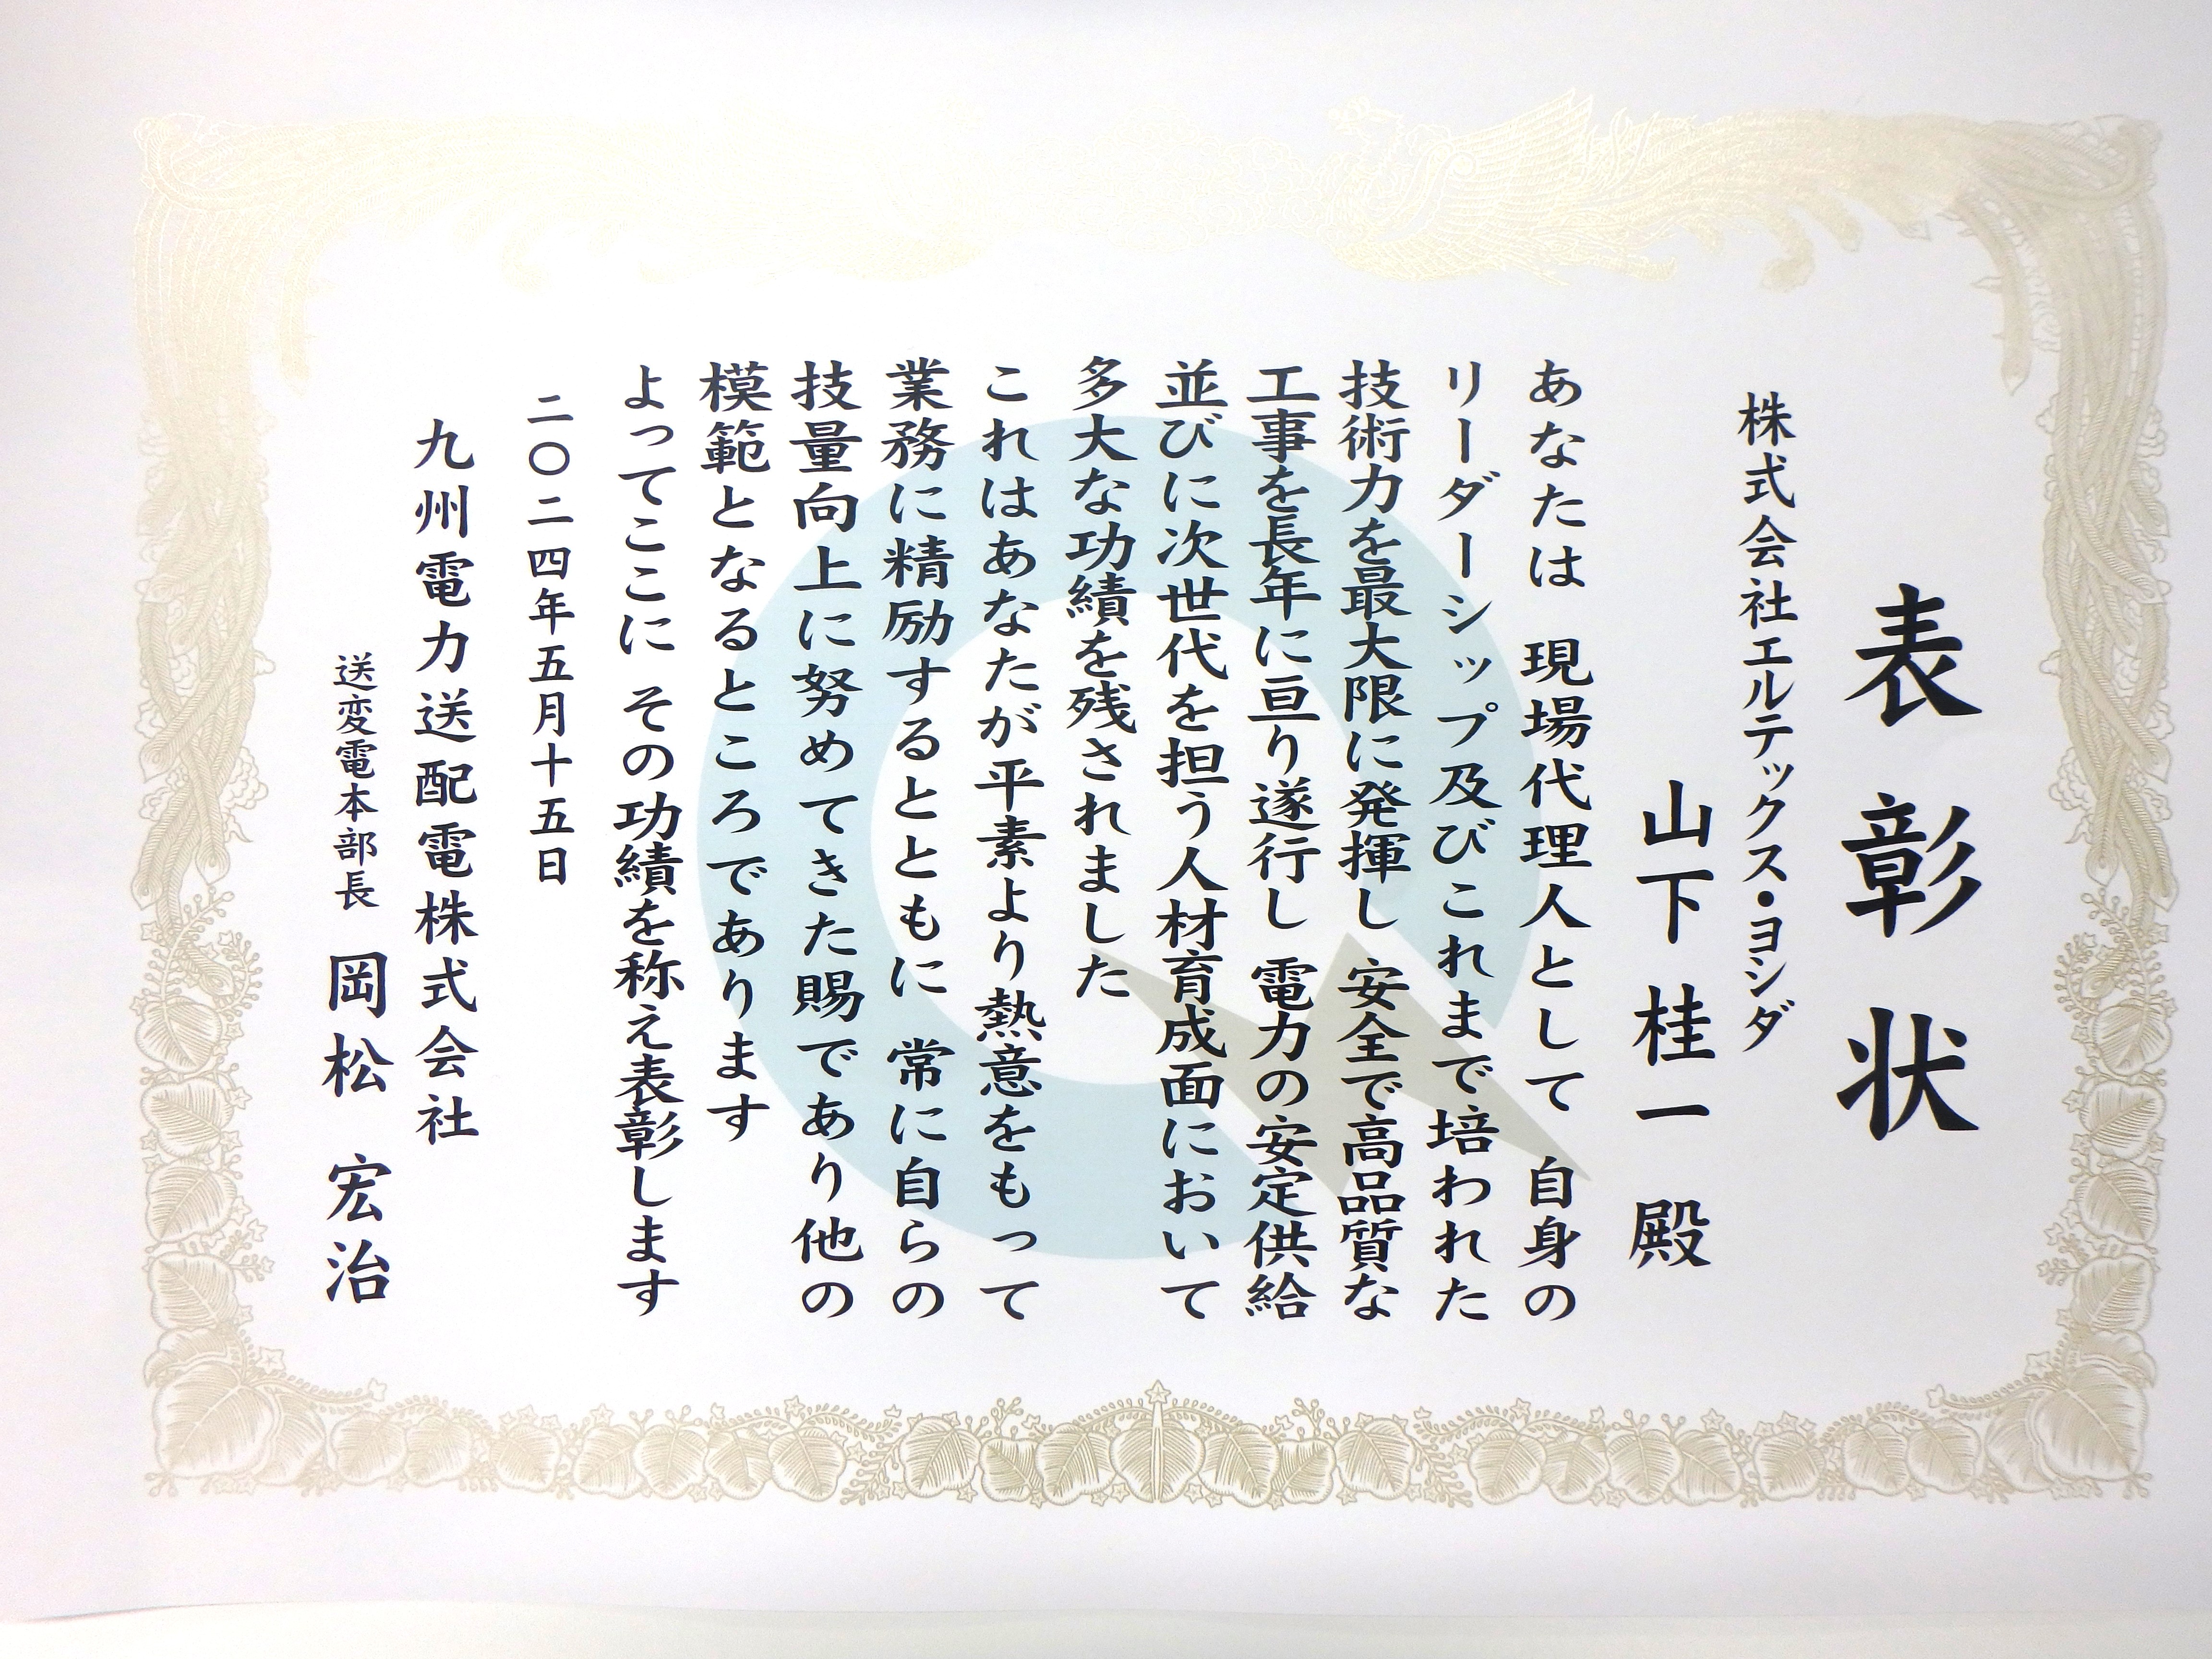 表彰状
株式会社エルテックス・ヨシダ
山下桂一 殿
あなたは 現場代理人として 自身の
リーダーシップ及びこれまで培われた
技術力を最大限に発揮し 安全で高品質な
工事を長年に亘り遂行し 電力の安定供給
並びに次世代を担う人材育成面において
多大な功績を残されました
これはあなたが平素より熱意をもって
業務に精励するとともに 常に自らの
技量向上に努めてきた賜であり他の
模範となるところであります
よってここに その功績を称え表彰します
二〇二四年五月十五日
九州電力送配電株式会社
送変電本部長 岡松 宏治